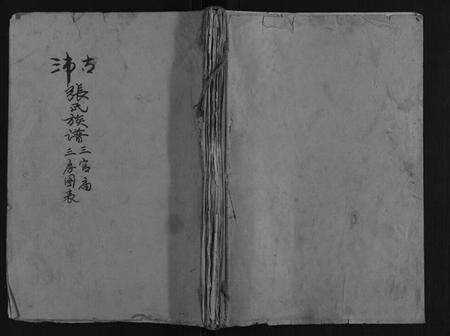 古沛
張氏族譜
三官廟
三房圖表